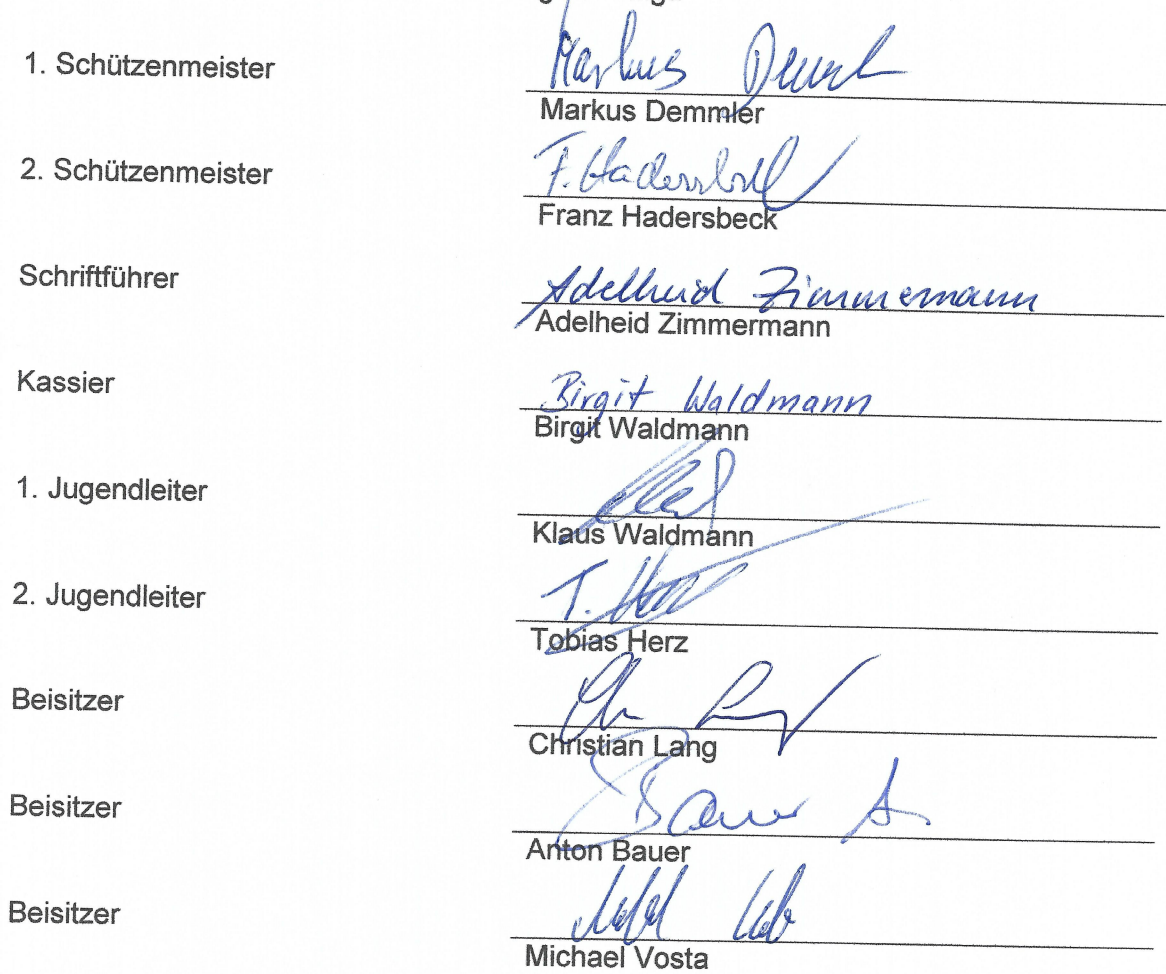 1. Schützenmeister
Markus Demmler
Markus Demmler
2. Schützenmeister
F. Hadersbeck
Franz Hadersbeck
Schriftführer
Adelheid Zimmermann
Adelheid Zimmermann
Kassier
Birgit Waldmann
Birgit Waldmann
1. Jugendleiter
Klaus Waldmann
2. Jugendleiter
T. Herz
Tobias Herz
Beisitzer
Christian Lang
Beisitzer
Bauer A
Anton Bauer
Beisitzer
Michael Vosta